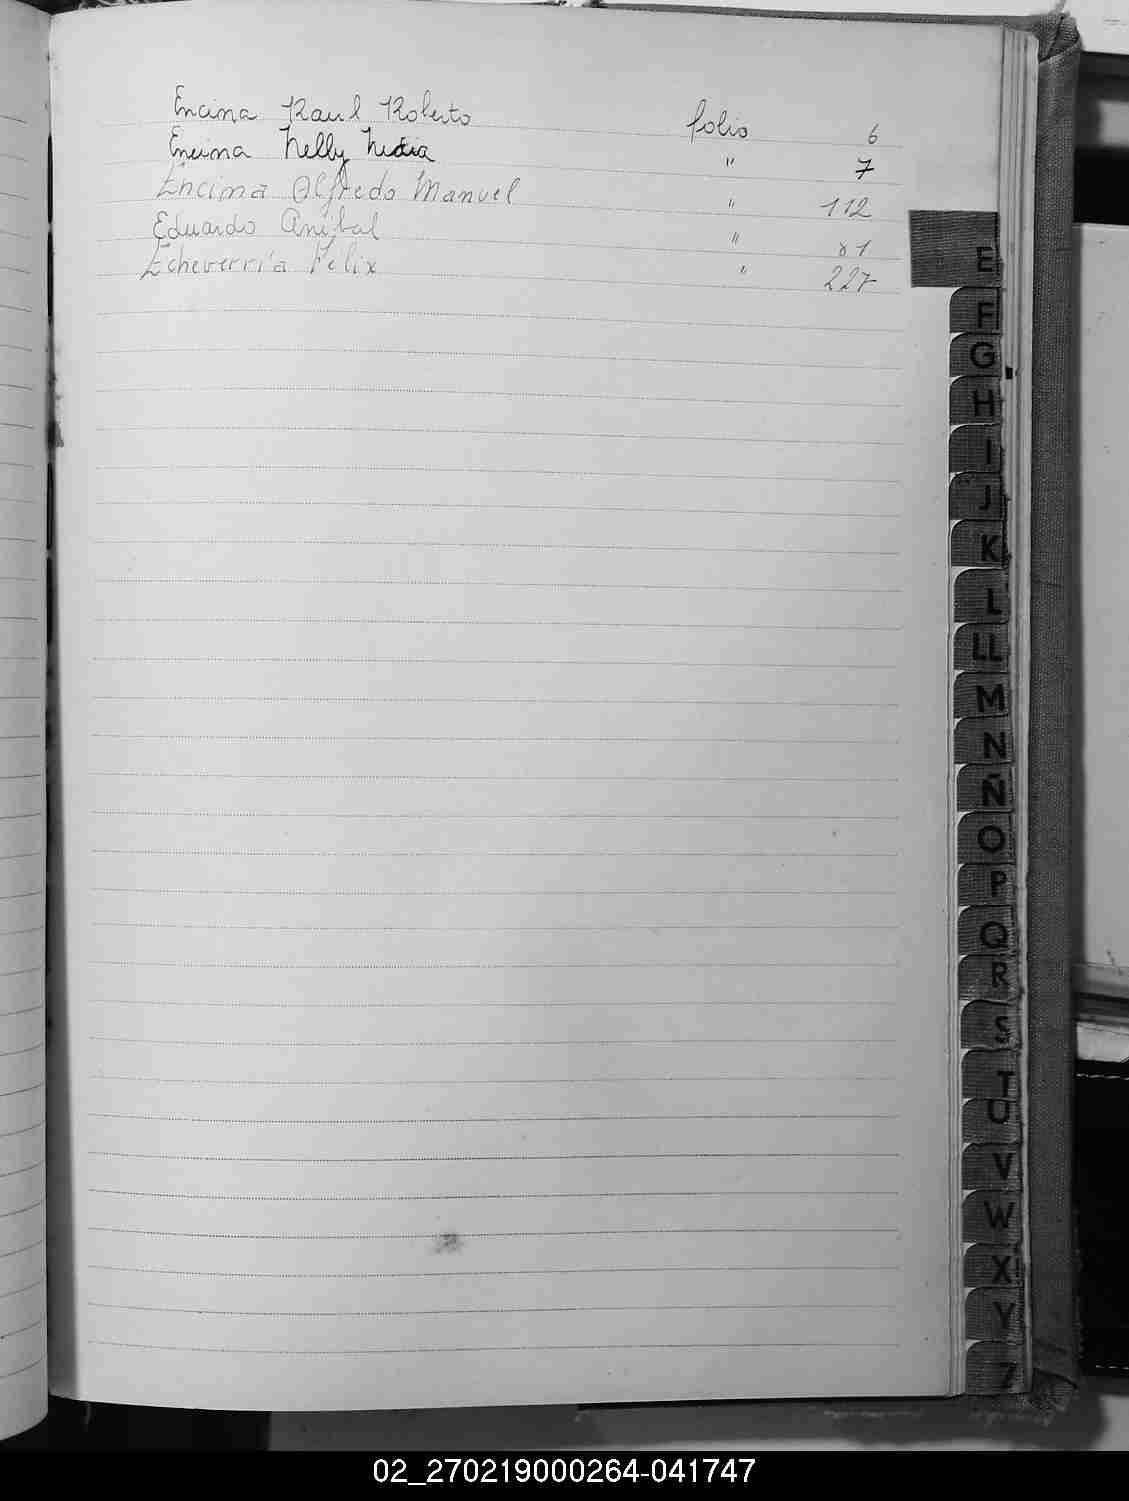 Encina Raul Roberto folio 6
Encina Nelly Nidia " 7
Encima Alfredo Manuel " 112
Eduardo Anibal " 81
Echeverría Felix " 227
E
F
G
H
I
J
K
L
LL
M
N
Ñ
O
P
Q
R
S
T
U
V
W
X
Y
Z
02_270219000264-041747